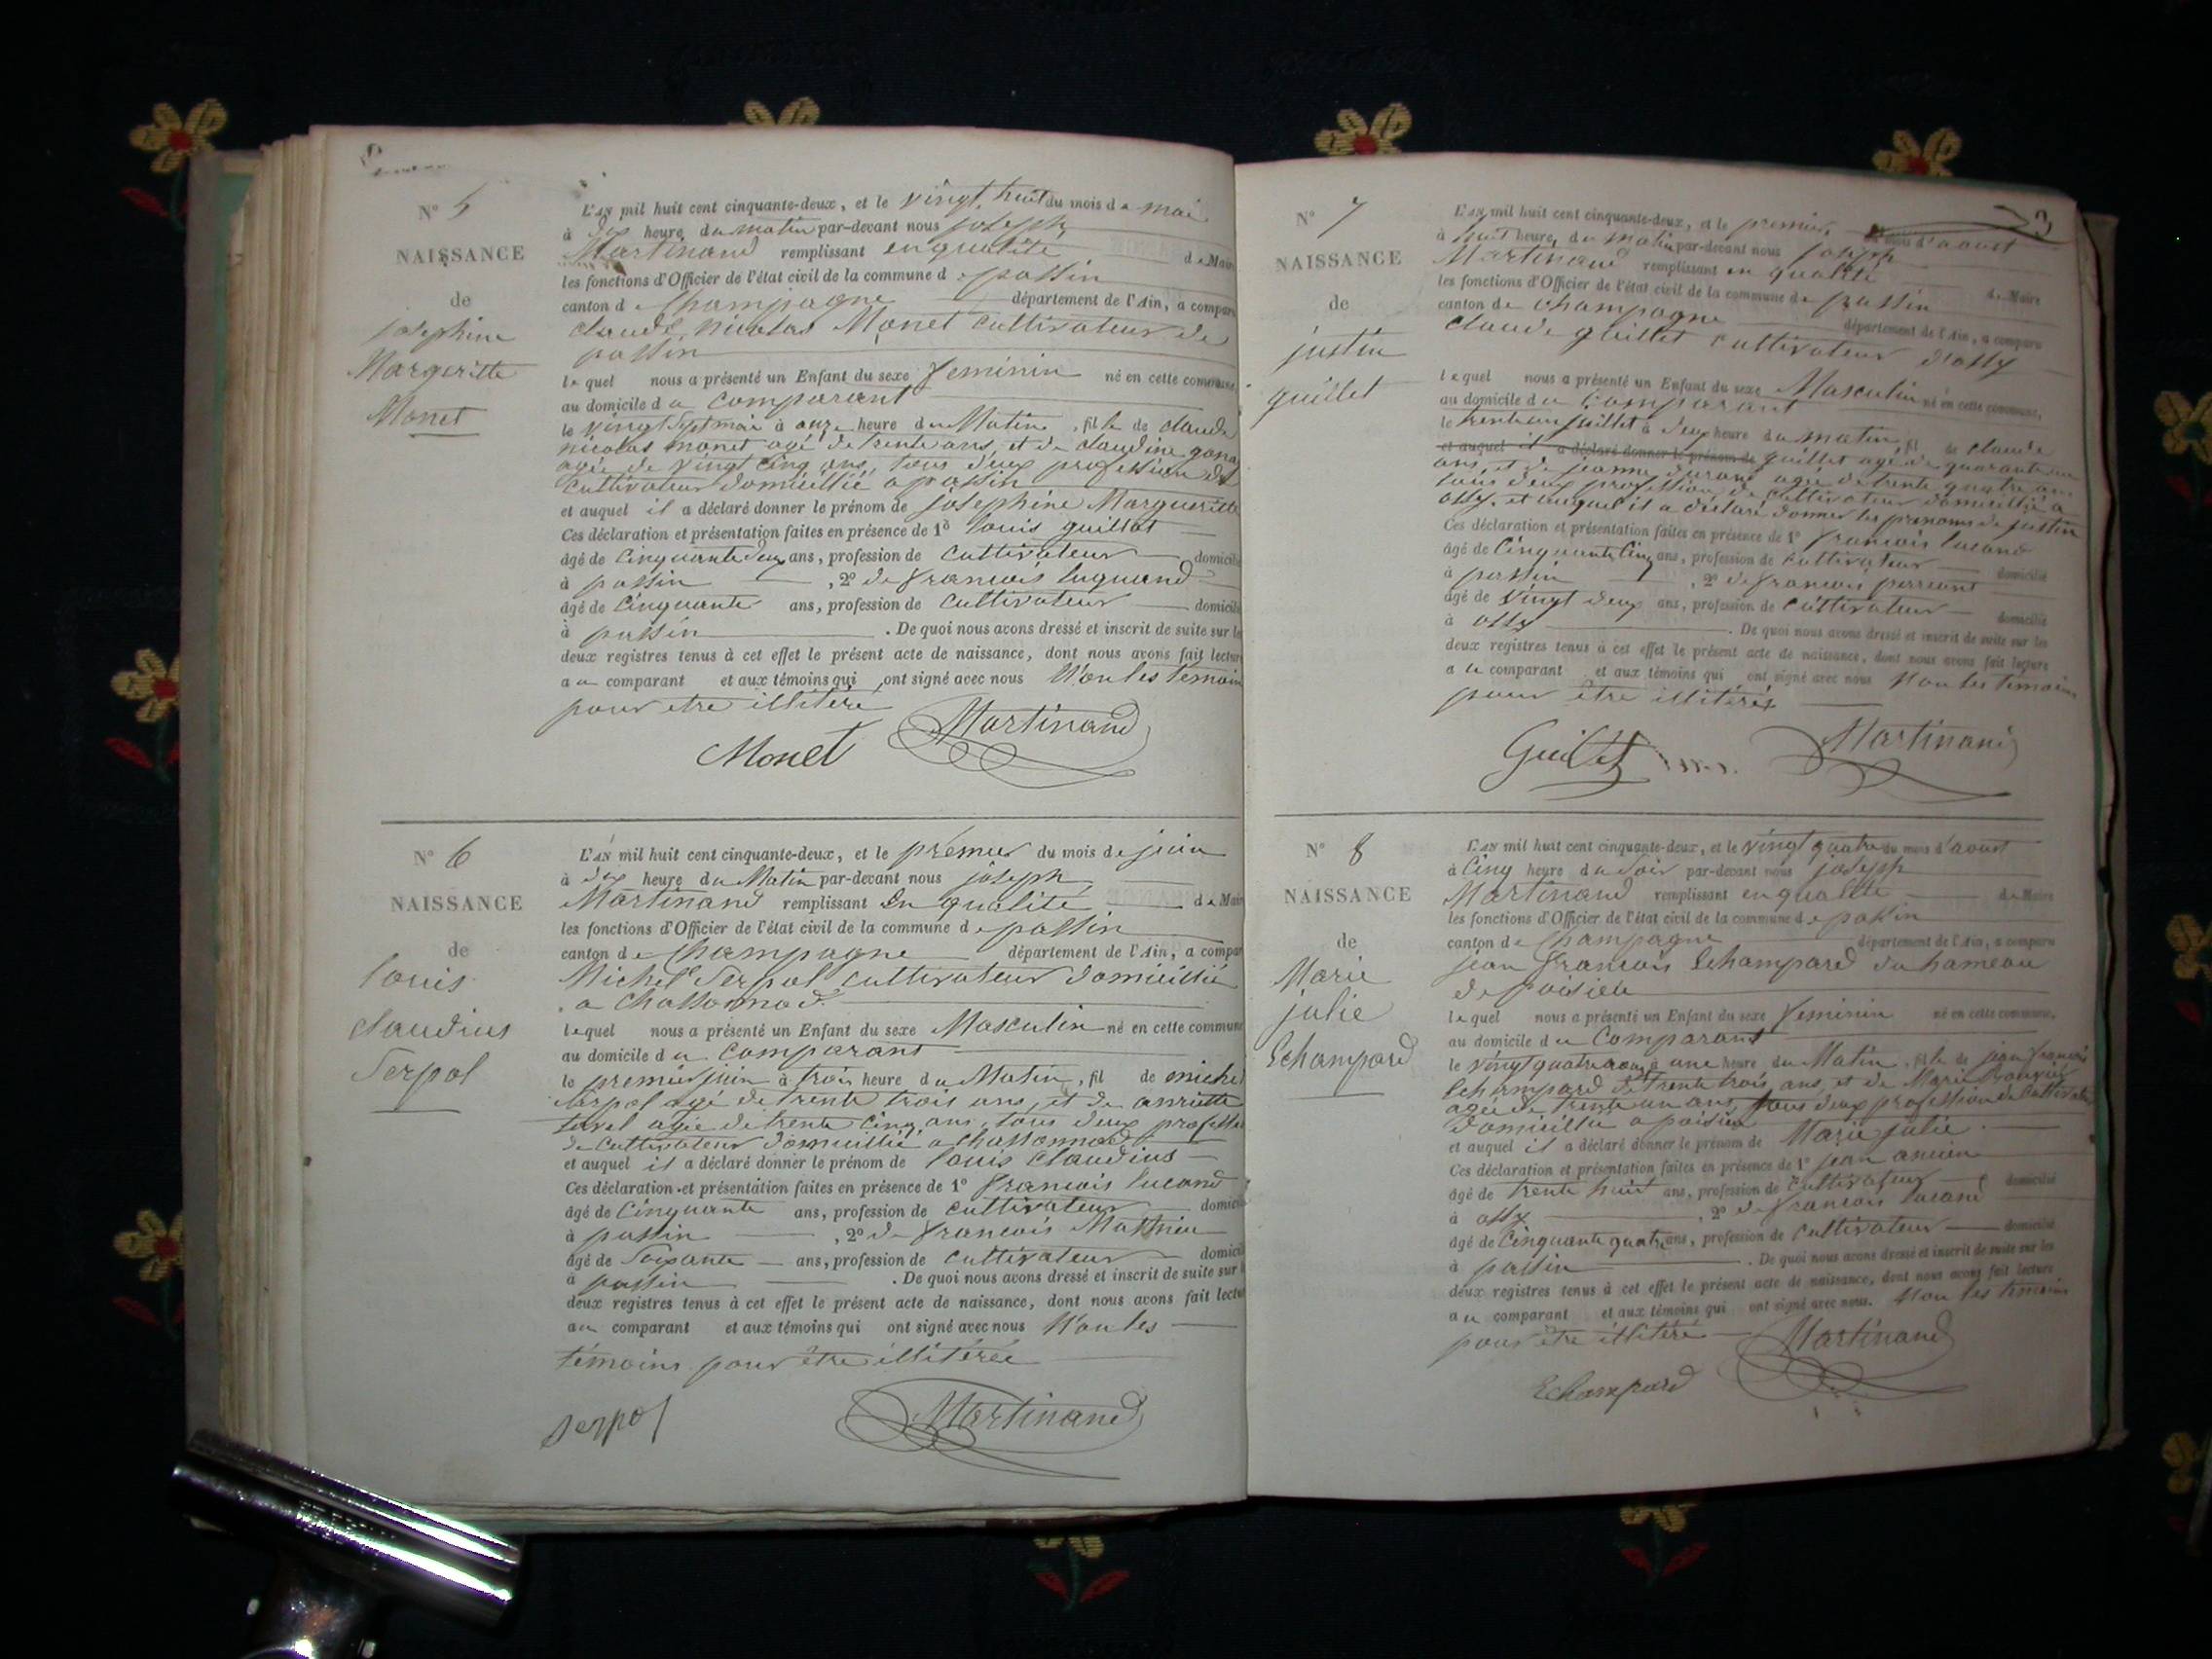 N° 5
NAISSANCE
de
josephine
Margeritte
Monet
L'AN mil huit cent cinquante-deux, et le vingt huit du mois de mai
à dix heure du matin par-devant nous joseph
Martinand remplissant en qualité de Maire
les fonctions d'Officier de l'état civil de la commune de passin
canton de Champagne département de l'Ain, a compar
claude nicolas Monet cultivateur de
passin
lequel nous a présenté un Enfant du sexe feminin né en cette commune,
au domicile du comparant
le vingt sept mai à onze heure du Matin, fille de claude
nicolas monet agé de trente ans, et de claudine
agée de vingt cinq ans, tous deux profession de
cultivateur domicillié a passin
et auquel il a déclaré donner le prénom de josephine Margueritte
Ces déclaration et présentation faites en présence de 1° louis guillot
âgé de cinquante deux ans, profession de cultivateur domicilié
à passin, 2° de francois luquand
âgé de cinquante ans, profession de cultivateur domicilié
à passin. De quoi nous avons dressé et inscrit de suite sur les
deux registres tenus à cet effet le présent acte de naissance, dont nous avons fait lecture
au comparant et aux témoins qui ont signé avec nous Non les temoin
pour etre illiteré
Monet Martinand
N° 6
NAISSANCE
de
louis
claudius
Serpol
L'AN mil huit cent cinquante-deux, et le premier du mois de juin
à dix heure du Matin par-devant nous joseph
Martinand remplissant En qualité de Mair
les fonctions d'Officier de l'état civil de la commune de passin
canton de Champagne département de l'Ain, a compar
Michel Serpol cultivateur domicillié
a chassonnod
lequel nous a présenté un Enfant du sexe Masculin né en cette commune
au domicile du comparant
le premier juin à trois heure du Matin, fil de michel
serpol agé de trente trois ans, et de anriette
tavel agée de trente cinq ans, tous deux profession
de cultivateur domicillié a chassonnod
et auquel il a déclaré donner le prénom de louis claudius
Ces déclaration et présentation faites en présence de 1° francois lucand
âgé de cinquante ans, profession de cultivateur domicilié
à passin, 2° de francois Mathieu
âgé de Soixante ans, profession de cultivateur domicilié
à passin. De quoi nous avons dressé et inscrit de suite sur
deux registres tenus à cet effet le présent acte de naissance, dont nous avons fait lectur
au comparant et aux témoins qui ont signé avec nous Non les
témoins pour être illiterée
serpol Martinand
3
N° 7
NAISSANCE
de
justin
guillet
L'AN mil huit cent cinquante-deux, et le premier du mois d'aoust
à huit heure du matin par-devant nous joseph
Martinand remplissant en qualité de Maire
les fonctions d'Officier de l'état civil de la commune de passin
canton de champagne département de l'Ain, a comparu
claude guillet cultivateur d'ossy
lequel nous a présenté un Enfant du sexe Masculin né en cette commune,
au domicile du comparant
le trente un juillet à deux heure du matin, fil de claude
et auquel il a déclaré donner le prénom de guillet agé de quarante un
ans, et de jeanne durand agée de trente quatre ans
tous deux profession de cultivateur domicillié a
ossy, et auquel il a déclaré donner les prenoms de justin
Ces déclaration et présentation faites en présence de 1° francois lucand
âgé de cinquante cinq ans, profession de cultivateur domicilié
à passin, 2° de francois
âgé de vingt deux ans, profession de cultivateur domicilié
à ossy. De quoi nous avons dressé et inscrit de suite sur les
deux registres tenus à cet effet le présent acte de naissance, dont nous avons fait lecture
au comparant et aux témoins qui ont signé avec nous Non les témoins
pour être illitérés
Guillet Martinand
N° 8
NAISSANCE
de
Marie
julie
Echampard
L'AN mil huit cent cinquante-deux, et le vingt quatre du mois d'aoust
à cinq heure du Soir par-devant nous joseph
Martinand remplissant en qualité de Maire
les fonctions d'Officier de l'état civil de la commune de passin
canton de Champagne département de l'Ain, a comparu
jean francois Echampard du hameau
de poisieu
lequel nous a présenté un Enfant du sexe feminin né en cette commune,
au domicile du Comparant
le vingt quatre aout à une heure du Matin, fille de jean francois
Echampard de trente trois ans, et de Marie
agée de trente un ans, tous deux profession de cultivateur
domicillié a poisieu
et auquel il a déclaré donner le prénom de Marie julie
Ces déclaration et présentation faites en présence de 1° jean
âgé de trente huit ans, profession de cultivateur domicilié
à ossy, 2° de francois lucand
âgé de cinquante quatre ans, profession de cultivateur domicilié
à passin. De quoi nous avons dressé et inscrit de suite sur les
deux registres tenus à cet effet le présent acte de naissance, dont nous avons fait lecture
au comparant et aux témoins qui ont signé avec nous. Non les temoins
pour être illiteré
Echampard Martinand